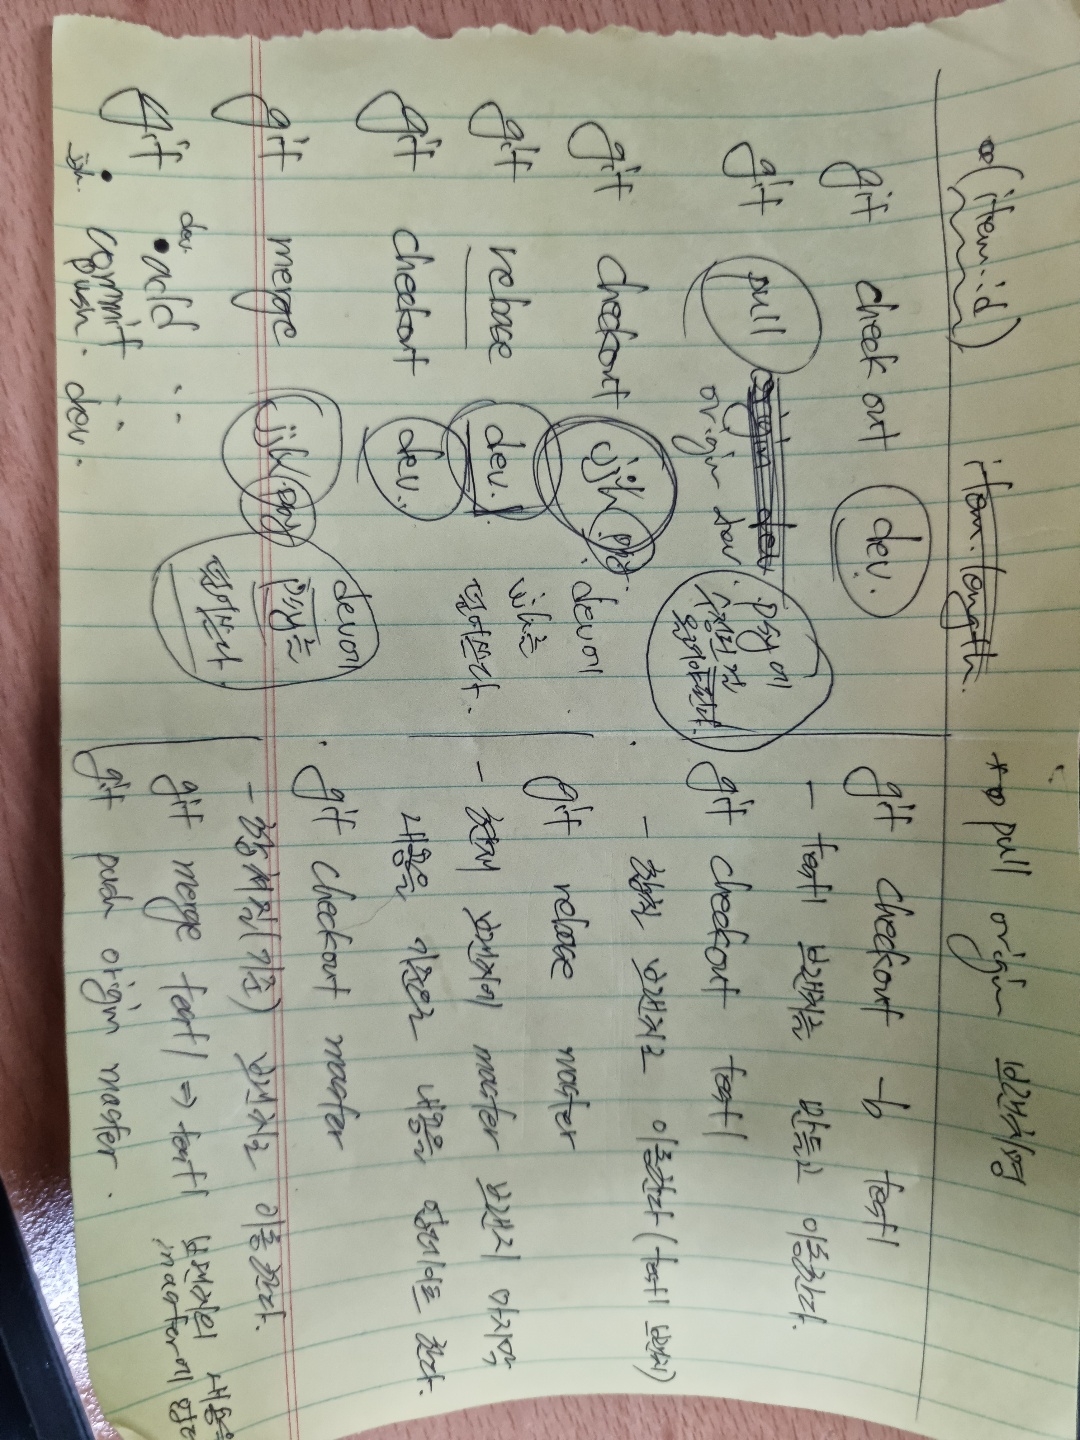 (item.id) item.length
git check out dev.
git pull origin dev
origin dev
psy에
수정된 걸
올려야된다.
git checkout jjh psy.
dev에
jjh를
덮어쓰다.
git rebase dev.
git checkout dev.
git merge jjh psy
dev에
psy를
덮어쓰다
dev.
git add ..
commit ..
jjh. push. dev.
pull origin 브랜치명
git checkout -b test1
- test1 브랜치를 만들고 이동한다.
git checkout test1
- 합칠 브랜치로 이동한다 (test1 브랜치)
git rebase master
- 현재 브랜치에 master 브랜치 마지막
내용을 기준으로 내용을 업데이트 한다.
git checkout master
- 합쳐질(기준) 브랜치로 이동한다.
git merge test1 ⇒ test1 브랜치의 내용을
master에
git push origin master.